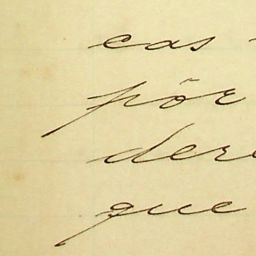 cas
pór
dere
que